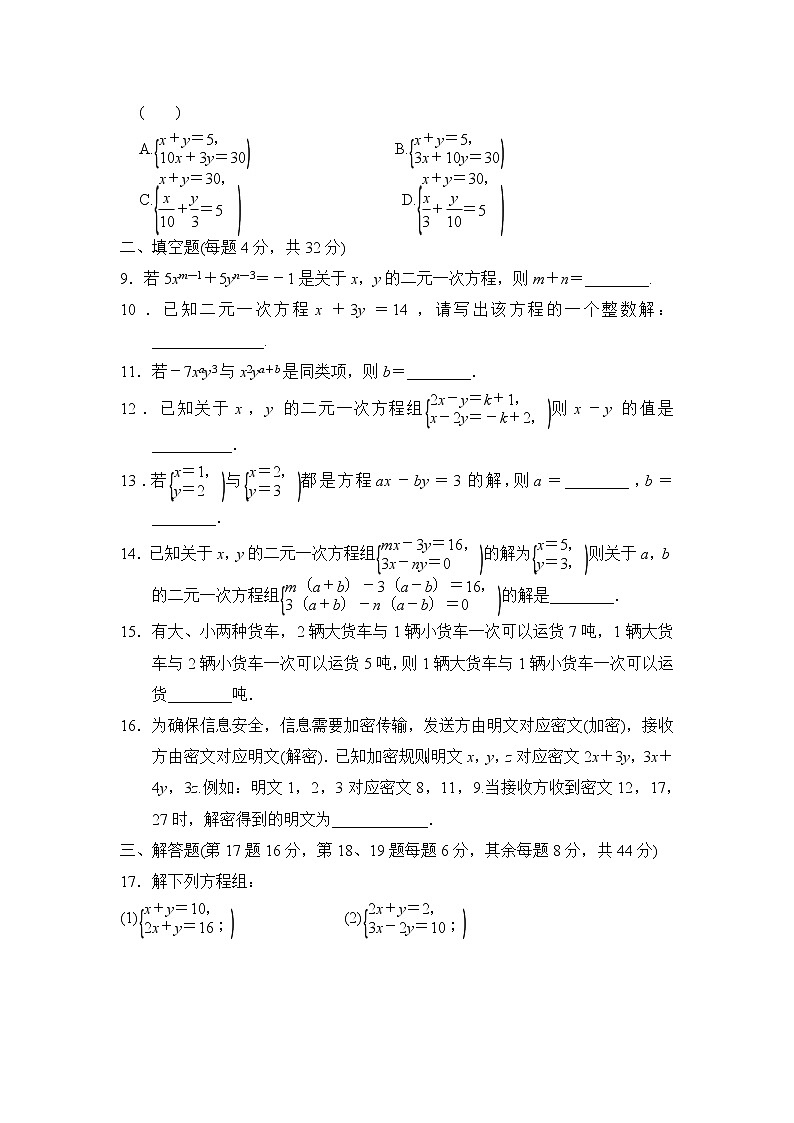 (　　)
A.{x+y=5, 10x+3y=30)　B.{x+y=5, 3x+10y=30)
C.{x+y=30, x/10+y/3=5)　D.{x+y=30, x/3+y/10=5)
二、填空题(每题4分，共32分)
9．若5xᵐ⁻¹+5yⁿ⁻³=-1是关于x，y的二元一次方程，则m+n=________.
10．已知二元一次方程x+3y=14，请写出该方程的一个整数解：
______________.
11．若-7xᵃy³与x²yᵃ⁺ᵇ是同类项，则b=________.
12．已知关于x，y的二元一次方程组{2x-y=k+1, x-2y=-k+2,)则x-y的值是
__________.
13.若{x=1, y=2)与{x=2, y=3)都是方程ax-by=3的解,则a=________,b=
________.
14.已知关于x，y的二元一次方程组{mx-3y=16, 3x-ny=0)的解为{x=5, y=3,)则关于a，b
的二元一次方程组{m（a+b）-3（a-b）=16, 3（a+b）-n（a-b）=0)的解是________.
15．有大、小两种货车，2辆大货车与1辆小货车一次可以运货7吨，1辆大货
车与2辆小货车一次可以运货5吨,则1辆大货车与1辆小货车一次可以运
货________吨.
16．为确保信息安全，信息需要加密传输，发送方由明文对应密文(加密)，接收
方由密文对应明文(解密)．已知加密规则明文x，y，z对应密文2x+3y，3x+
4y，3z.例如：明文1，2，3对应密文8，11，9.当接收方收到密文12，17，
27时，解密得到的明文为____________.
三、解答题(第17题16分，第18、19题每题6分，其余每题8分，共44分)
17．解下列方程组：
(1){x+y=10, 2x+y=16；)　(2){2x+y=2, 3x-2y=10；)